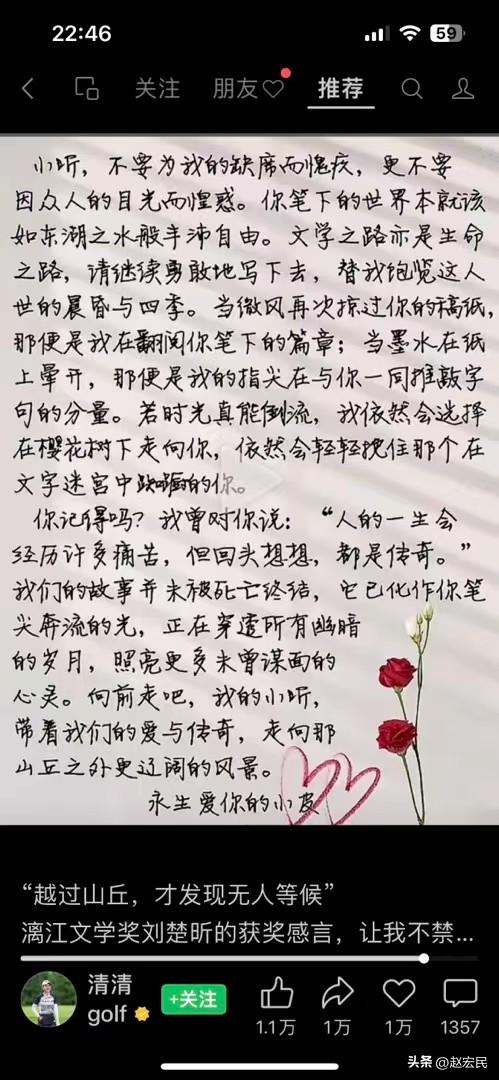 22:46
59
关注
朋友
推荐
小听，不要为我的缺席而愧疚，更不要
因众人的目光而惶惑。你笔下的世界本就该
如东湖之水般丰沛自由。文学之路亦是生命
之路，请继续勇敢地写下去，替我饱览这人
世的晨昏与四季。当微风再次掠过你的稿纸，
那便是我在翻阅你笔下的篇章；当墨水在纸
上晕开，那便是我的指尖在与你一同推敲字
句的分量。若时光真能倒流，我依然会选择
在樱花树下走向你，依然会轻轻挽住那个在
文字迷宫中的你。
你记得吗？我曾对你说：“人的一生会
经历许多痛苦，但回头想想，都是传奇。”
我们的故事并未被死亡终结，它已化作你笔
尖奔流的光，正在穿透所有幽暗
的岁月，照亮更多未曾谋面的
心灵。向前走吧，我的小听，
带着我们的爱与传奇，走向那
山丘之外更辽阔的风景。
永生爱你的小皮
“越过山丘，才发现无人等候”
漓江文学奖刘楚昕的获奖感言，让我不禁...
清清
golf
+关注
1.1万
1万
1万
1357
头条 @赵宏民